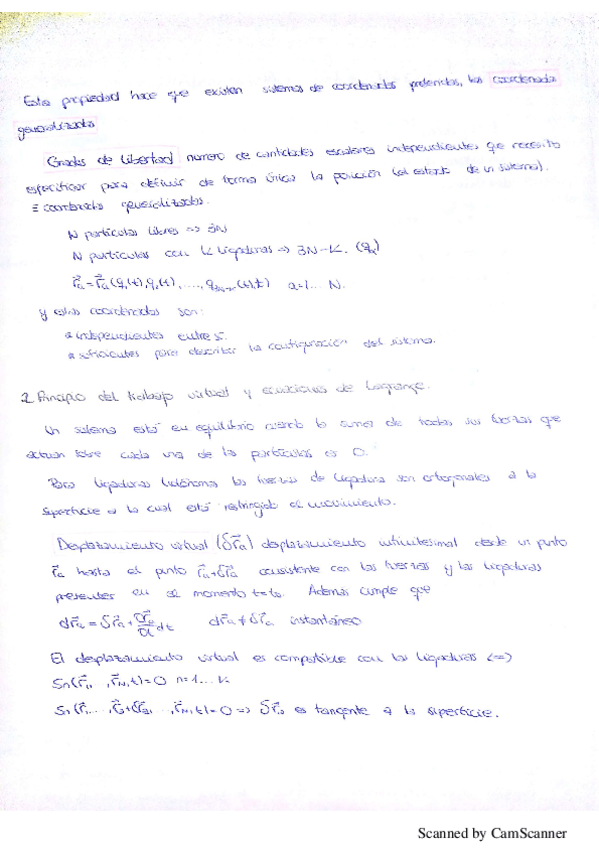 Esta propiedad hace que existan sistemas de coordenadas preferidas, las coordenadas
generalizadas
Grados de libertad número de cantidades escalares independientes que necesito
especificar para definir de forma única la posición (el estado de un sistema).
≡ coordenadas generalizadas.
N partículas libres => 3N
N partículas con K ligaduras => 3N-K. (qk)
r⃗a = r⃗a (q1(t), q2(t), ...., q3N-K(t), t) a=1... N.
y estas coordenadas son:
* independientes entre sí.
* suficientes para describir la configuración del sistema.
2. Principio del trabajo virtual y ecuaciones de Lagrange.
Un sistema está en equilibrio cuando la suma de todas sus fuerzas que
actúan sobre cada una de la partículas es 0.
Para ligaduras las fuerzas de ligadura son ortogonales a la
superficie a la cual está restringido el movimiento.
Desplazamiento virtual (δr⃗a) desplazamiento infinitesimal desde un punto
r⃗a hasta el punto r⃗a+δr⃗a consistente con las fuerzas y las ligaduras
presentes en el momento t=t0. Además cumple que
dr⃗a = δr⃗a + ∂r⃗a/∂t dt dr⃗a ≠ δr⃗a instantáneo
El desplazamiento virtual es compatible con las ligaduras <=>
Sn(r⃗1, , r⃗N, t)=0 n=1... K
Sn(r⃗1..., r⃗a+δr⃗a, ..., r⃗N, t)=0 => δr⃗a es tangente a la superficie.
Scanned by CamScanner